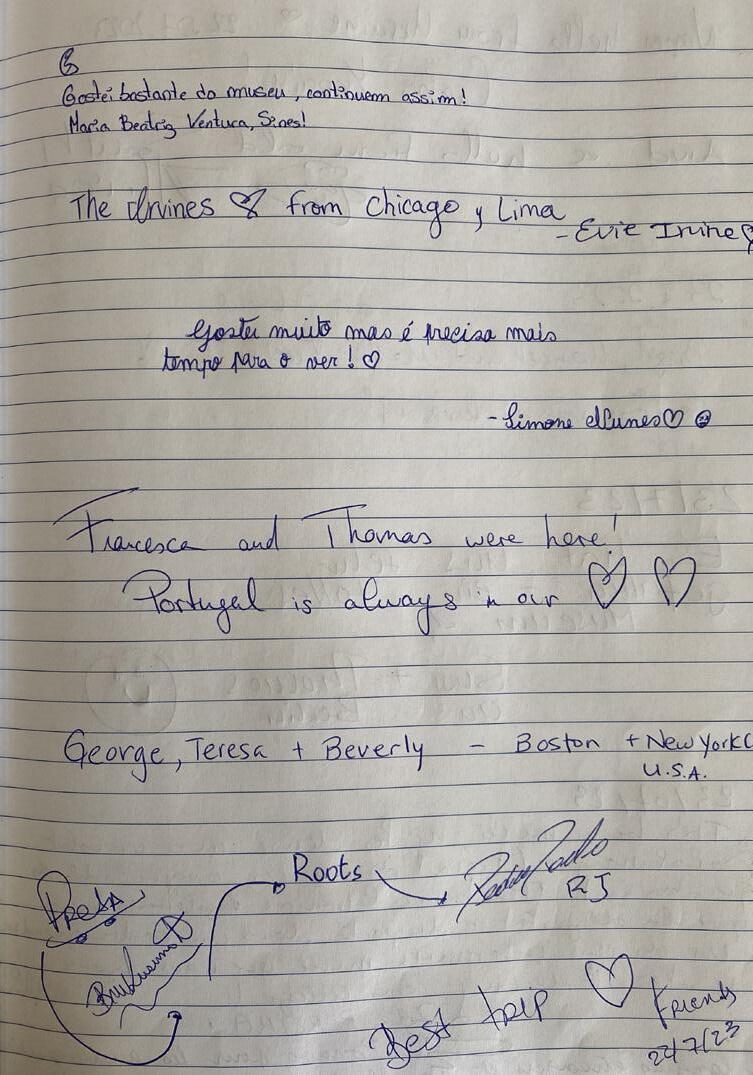 Gostei bastante do museu, continuem assim!
Maria Beatriz Ventura, Sines!
The Irvines from Chicago y Lima
- Evie Irvine
Gostei muito mas é precisa mais
tempo para o ver!
- Simone Nunes
Francesca and Thomas were here!
Portugal is always in our
George, Teresa + Beverly - Boston + New York C
U.S.A.
Roots
RJ
Best trip
friends
22/7/23